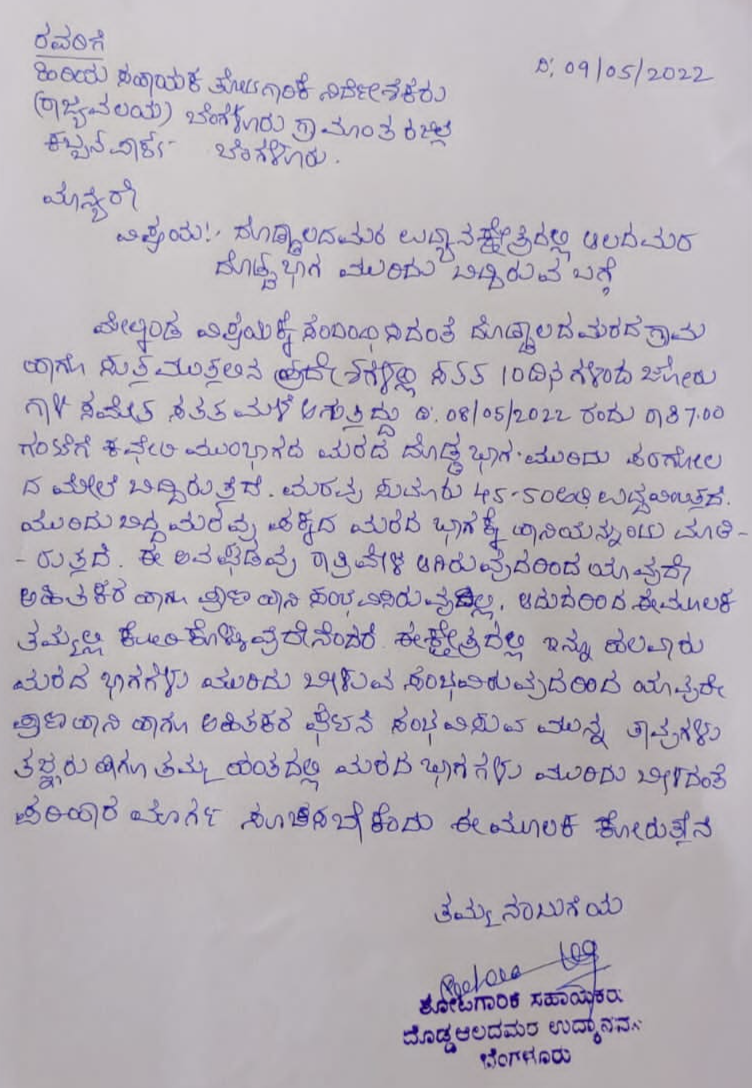 ರವರಿಗೆ
ಹಿರಿಯ ಸಹಾಯಕ ತೋಟಗಾರಿಕೆ ನಿರ್ದೇಶಕರು
ದಿ, 09/05/2022
(ರಾಜ್ಯವಲಯ) ಬೆಂಗಳೂರು ಗ್ರಾಮಾಂತರ ಜಿಲ್ಲೆ
ಕಬ್ಬನ್ ಪಾರ್ಕ್- ಬೆಂಗಳೂರು.
ಮಾನ್ಯರೇ
ವಿಷಯ:- ದೊಡ್ಡಾಲದಮರ ಉದ್ಯಾನಕ್ಷೇತ್ರದಲ್ಲಿ ಆಲದಮರ
ದೊಡ್ಡ ಭಾಗ ಮುರಿದು ಬಿದ್ದಿರುವ ಬಗ್ಗೆ
ಮೇಲ್ಕಂಡ ವಿಷಯಕ್ಕೆ ಸಂಬಂಧಿಸಿದಂತೆ ದೊಡ್ಡಾಲದಮರದ ಗ್ರಾಮ
ಹಾಗೂ ಸುತ್ತಮುತ್ತಲಿನ ಪ್ರದೇಶಗಳಲ್ಲಿ ಸತತ 10ದಿನಗಳಿಂದ ಜೋರು
ಗಾಳಿ ಸಮೇತ ಸತತ ಮಳೆ ಆಗುತ್ತಿದ್ದು ದಿ. 08/05/2022 ರಂದು ರಾತ್ರಿ 7.00
ಗಂಟೆಗೆ ಕಚೇರಿ ಮುಂಭಾಗದ ಮರದ ದೊಡ್ಡ ಭಾಗ ಮುರಿದು ಪರಗೋಲ
ದ ಮೇಲೆ ಬಿದ್ದಿರುತ್ತದೆ. ಮರವು ಸುಮಾರು 45-50ಅಡಿ ಉದ್ದವಿರುತ್ತದೆ.
ಮುರಿದು ಬಿದ್ದ ಮರವು ಪಕ್ಕದ ಮರದ ಭಾಗಕ್ಕೆ ಹಾನಿಯನ್ನುಂಟು ಮಾಡಿ-
-ರುತ್ತದೆ. ಈ ಅವಘಡವು ರಾತ್ರಿವೇಳೆ ಆಗಿರುವುದರಿಂದ ಯಾವುದೇ
ಅಹಿತಕರ ಹಾಗೂ ಪ್ರಾಣ ಹಾನಿ ಸಂಭವಿಸಿರುವುದಿಲ್ಲ. ಆದುದರಿಂದ ಈ ಮೂಲಕ
ತಮ್ಮಲ್ಲಿ ಕೋರಿಕೊಳ್ಳುವುದೇನೆಂದರೆ. ಈ ಕ್ಷೇತ್ರದಲ್ಲಿ ಇನ್ನು ಹಲವಾರು
ಮರದ ಭಾಗಗಳು ಮುರಿದು ಬೀಳುವ ಸಂಭವವಿರುವುದರಿಂದ ಯಾವುದೇ
ಪ್ರಾಣಹಾನಿ ಹಾಗೂ ಅಹಿತಕರ ಘಟನೆ ಸಂಭವಿಸುವ ಮುನ್ನ ತಾವುಗಳು
ತಜ್ಞರು ಹಾಗೂ ತಮ್ಮ ಹಂತದಲ್ಲಿ ಮರದ ಭಾಗಗಳು ಮುರಿದು ಬೀಳದಂತೆ
ಪರಿಹಾರ ಮಾರ್ಗ ಸೂಚಿಸಬೇಕೆಂದು ಈ ಮೂಲಕ ಕೋರುತ್ತೇನೆ
ತಮ್ಮ ನಂಬುಗೆಯ
ತೋಟಗಾರಿಕೆ ಸಹಾಯಕರು
ದೊಡ್ಡಆಲದಮರ ಉದ್ಯಾನವನ
ಬೆಂಗಳೂರು